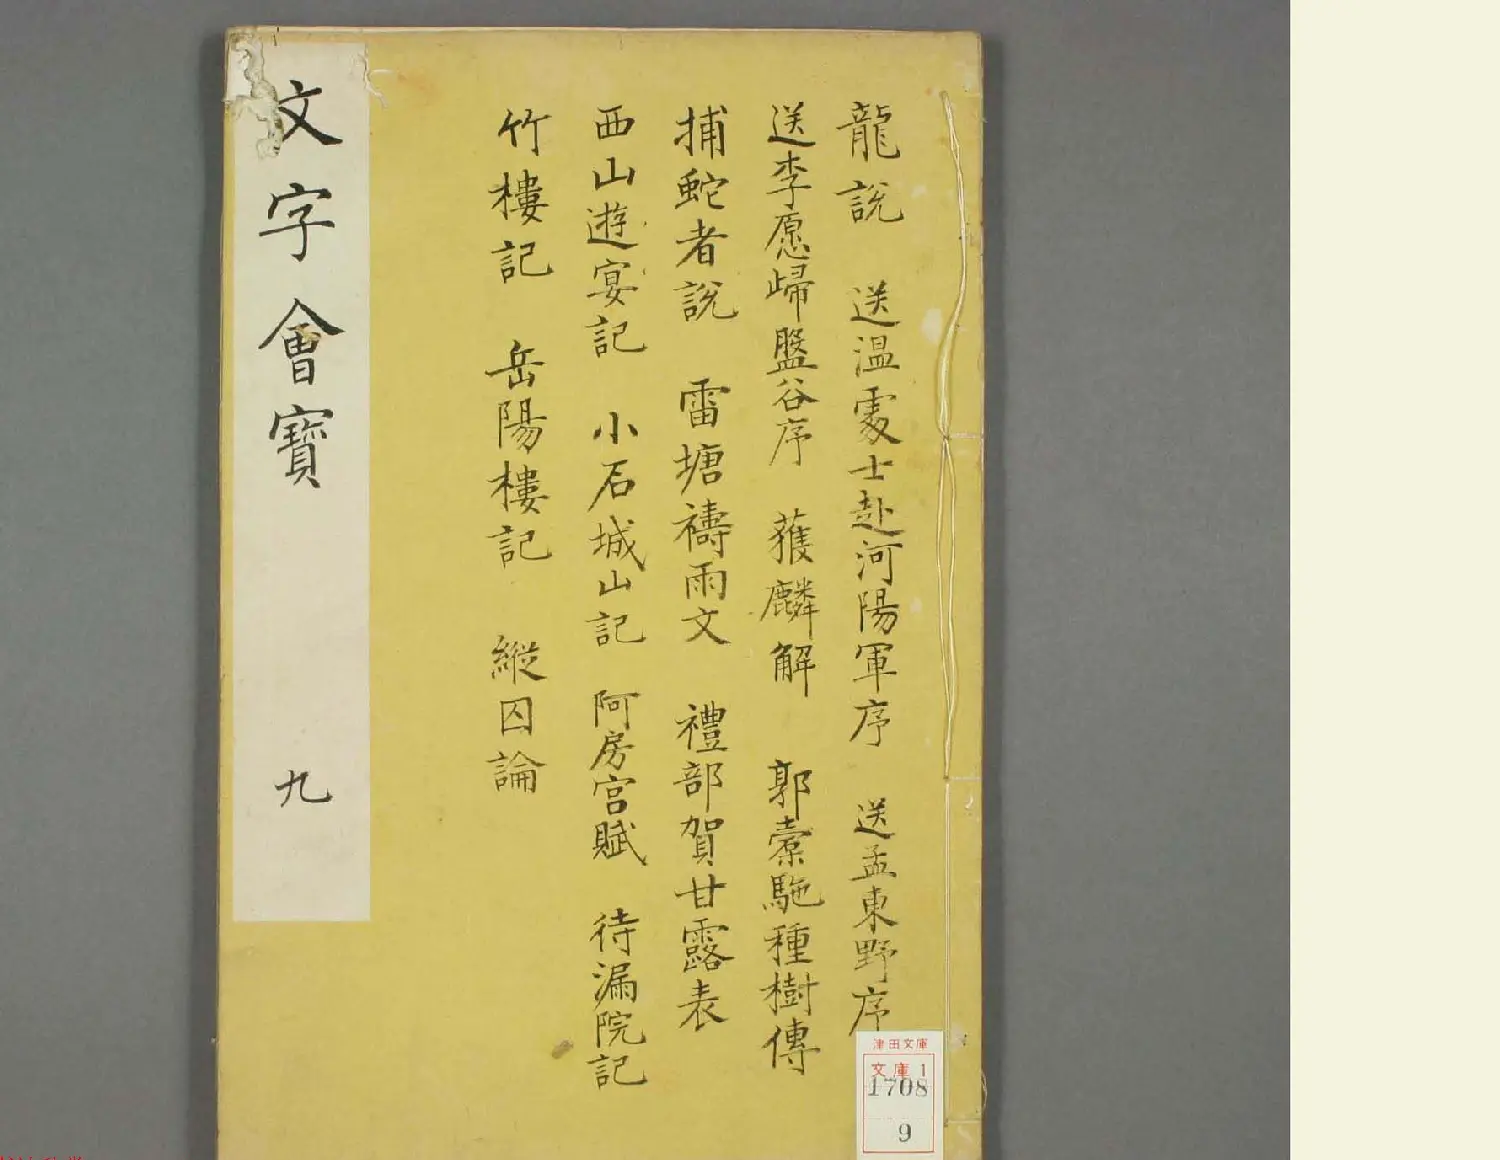 龍說 送温處士赴河陽軍序 送孟東野序
送李愿歸盤谷序 獲麟解 郭橐駞種樹傳
捕蛇者說 雷塘禱雨文 禮部賀甘露表
西山遊宴記 小石城山記 阿房宮賦 待漏院記
竹樓記 岳陽樓記 縱囚論
文字會寳 九
津田文庫
文庫1
1708
9